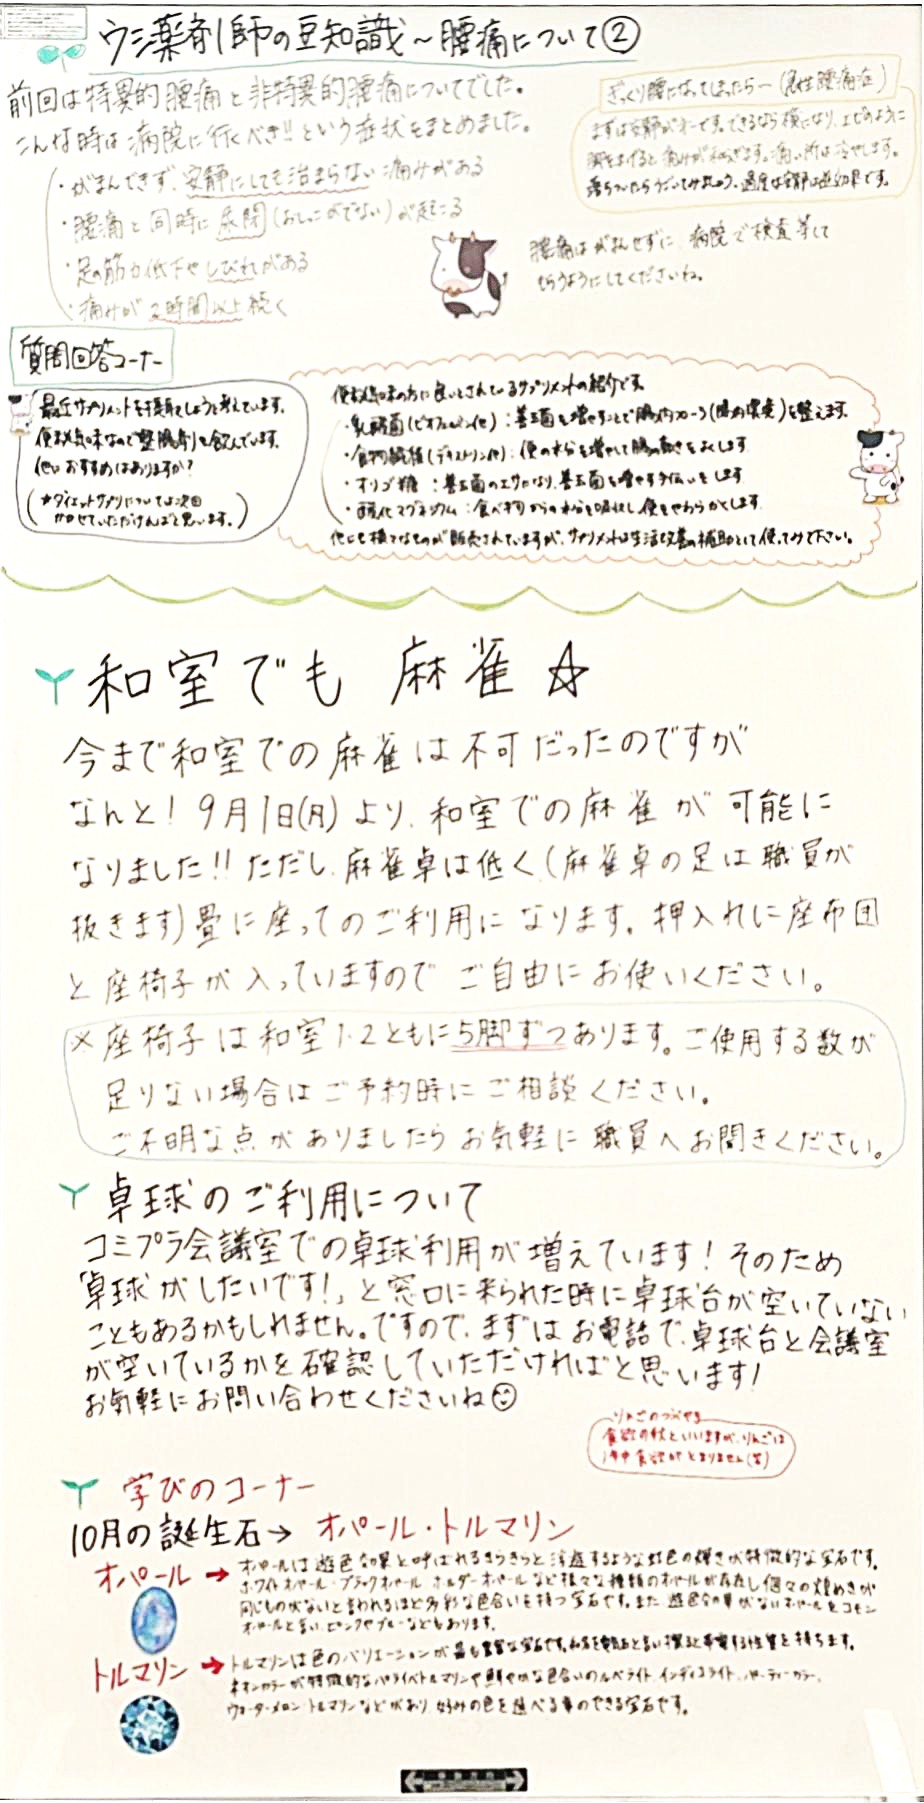 ウシ薬剤師の豆知識～腰痛について②
前回は特異的腰痛と非特異的腰痛についてでした。
こんな時は病院に行くべき!!という症状をまとめました。
・がまんできず、安静にしても治まらない痛みがある
・腰痛と同時に尿閉(おしっこがでない)が起こる
・足の筋力低下やしびれがある
・痛みが2時間以上続く
ぎっくり腰になってしまったら…(急性腰痛症)
まずは安静が第一です。できるなら横になり、エビのように
腰をまげると痛みが和らぎます。痛い所は冷やします。
落ちついたらうごいてみましょう。過度な安静は逆効果です。
腰痛はがまんせずに、病院で検査等して
もらうようにしてくださいね。
質問回答コーナー
最近サプリメントを摂取しようと考えています。
便秘気味なので整腸剤を飲んでいます。
他におすすめはありますか?
(★ダイエットサプリについては次回
かかせていただければと思います。)
便秘気味の方に良いとされているサプリメントの紹介です。
・乳酸菌(ビオフェルミン他):善玉菌を増やすことで腸内フローラ(腸内環境)を整えます。
・食物繊維(デキストリン他):便の水分を増やして腸の動きをよくします
・オリゴ糖:善玉菌のエサになり、善玉菌を増やす手伝いをします
・酸化マグネシウム:食べ物からの水分を吸収し、便をやわらかくします
他にも様々なものが販売されていますが、サプリメントは生活改善の補助として使ってみて下さい。
和室でも 麻雀☆
今まで和室での麻雀は不可だったのですが
なんと!9月1日(月)より、和室での麻雀が可能に
なりました!!ただし、麻雀卓は低く(麻雀卓の足は職員が
抜きます)畳に座ってのご利用になります。押入れに座布団
と座椅子が入っていますのでご自由にお使いください。
※座椅子は和室1・2ともに5脚ずつあります。ご使用する数が
足りない場合はご予約時にご相談ください。
ご不明な点がありましたらお気軽に職員へお聞きください。
卓球のご利用について
コミプラ会議室での卓球利用が増えています!そのため
「卓球がしたいです!」と窓口に来られた時に卓球台が空いていない
こともあるかもしれません。ですので、まずはお電話で、卓球台と会議室
が空いているかを確認していただければと思います!
お気軽にお問い合わせくださいね☺
りんごのつぶやき
食欲の秋といいますが、りんごは
1年中食欲がとまりません(笑)
学びのコーナー
10月の誕生石→ オパール・トルマリン
オパール→
オパールは遊色効果と呼ばれるきらきらと浮遊するような虹色の輝きが特徴的な宝石です。
ホワイトオパール・ブラックオパール・ボルダーオパールなど様々な種類のオパールが存在し個々の煌めきが
同じものがないと言われるほど多彩な色合いを持つ宝石です。また、遊色効果がないオパールをコモン
オパールと言い、ピンクやブルーなどもあります。
トルマリン→
トルマリンは色のバリエーションが最も豊富な宝石です。和名を電気石と言い擦ると帯電する性質を持ちます。
ネオンカラーが特徴的なパライバトルマリンや鮮やかな色合いのルベライト、インディゴライト、パーティーカラー、
ウォーターメロントルマリンなどがあり、好みの色を選べる事のできる宝石です。